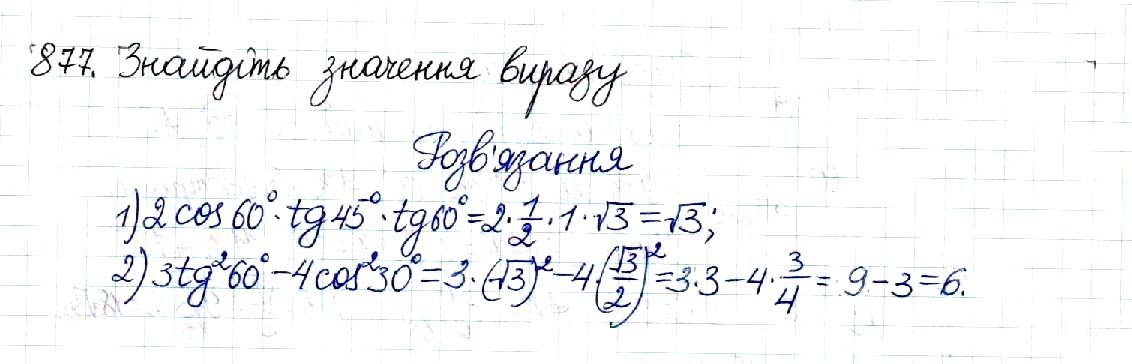 877. Знайдіть значення виразу
Розв'язання
1) 2 cos 60° · tg 45° · tg 60° = 2 · 1/2 · 1 · √3 = √3;
2) 3tg²60° − 4cos²30° = 3 · (√3)² − 4 · (√3/2)² = 3·3 − 4 · 3/4 = 9 − 3 = 6.